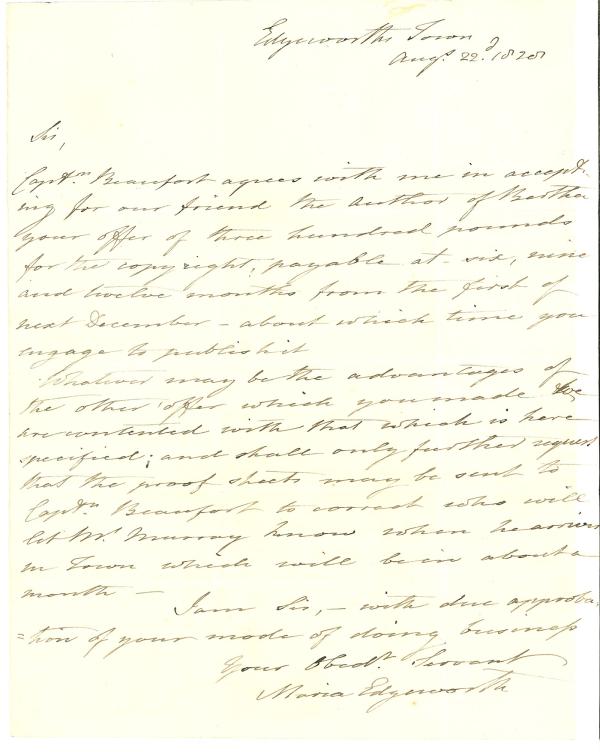 Edgeworths Town
Augs. 22d. 1828
Sir,
Captn. Beaufort agrees with me in accept-
ing for our friend the author of Bertha
your offer of three hundred pounds
for the copyright, payable at six, nine
and twelve months from the first of
next December - about which time you
engage to publish it
Whatever may be the advantages of
the other offer which you made we
are contented with that which is here
specified; and shall only further request
that the proof sheets may be sent to
Captn. Beaufort to correct who will
let Mr. Murray know when he arrives
in Town which will be in about a
month —
I am Sir, - with due approba-
=tion of your mode of doing business
Your Obedt. Servant
Maria Edgeworth